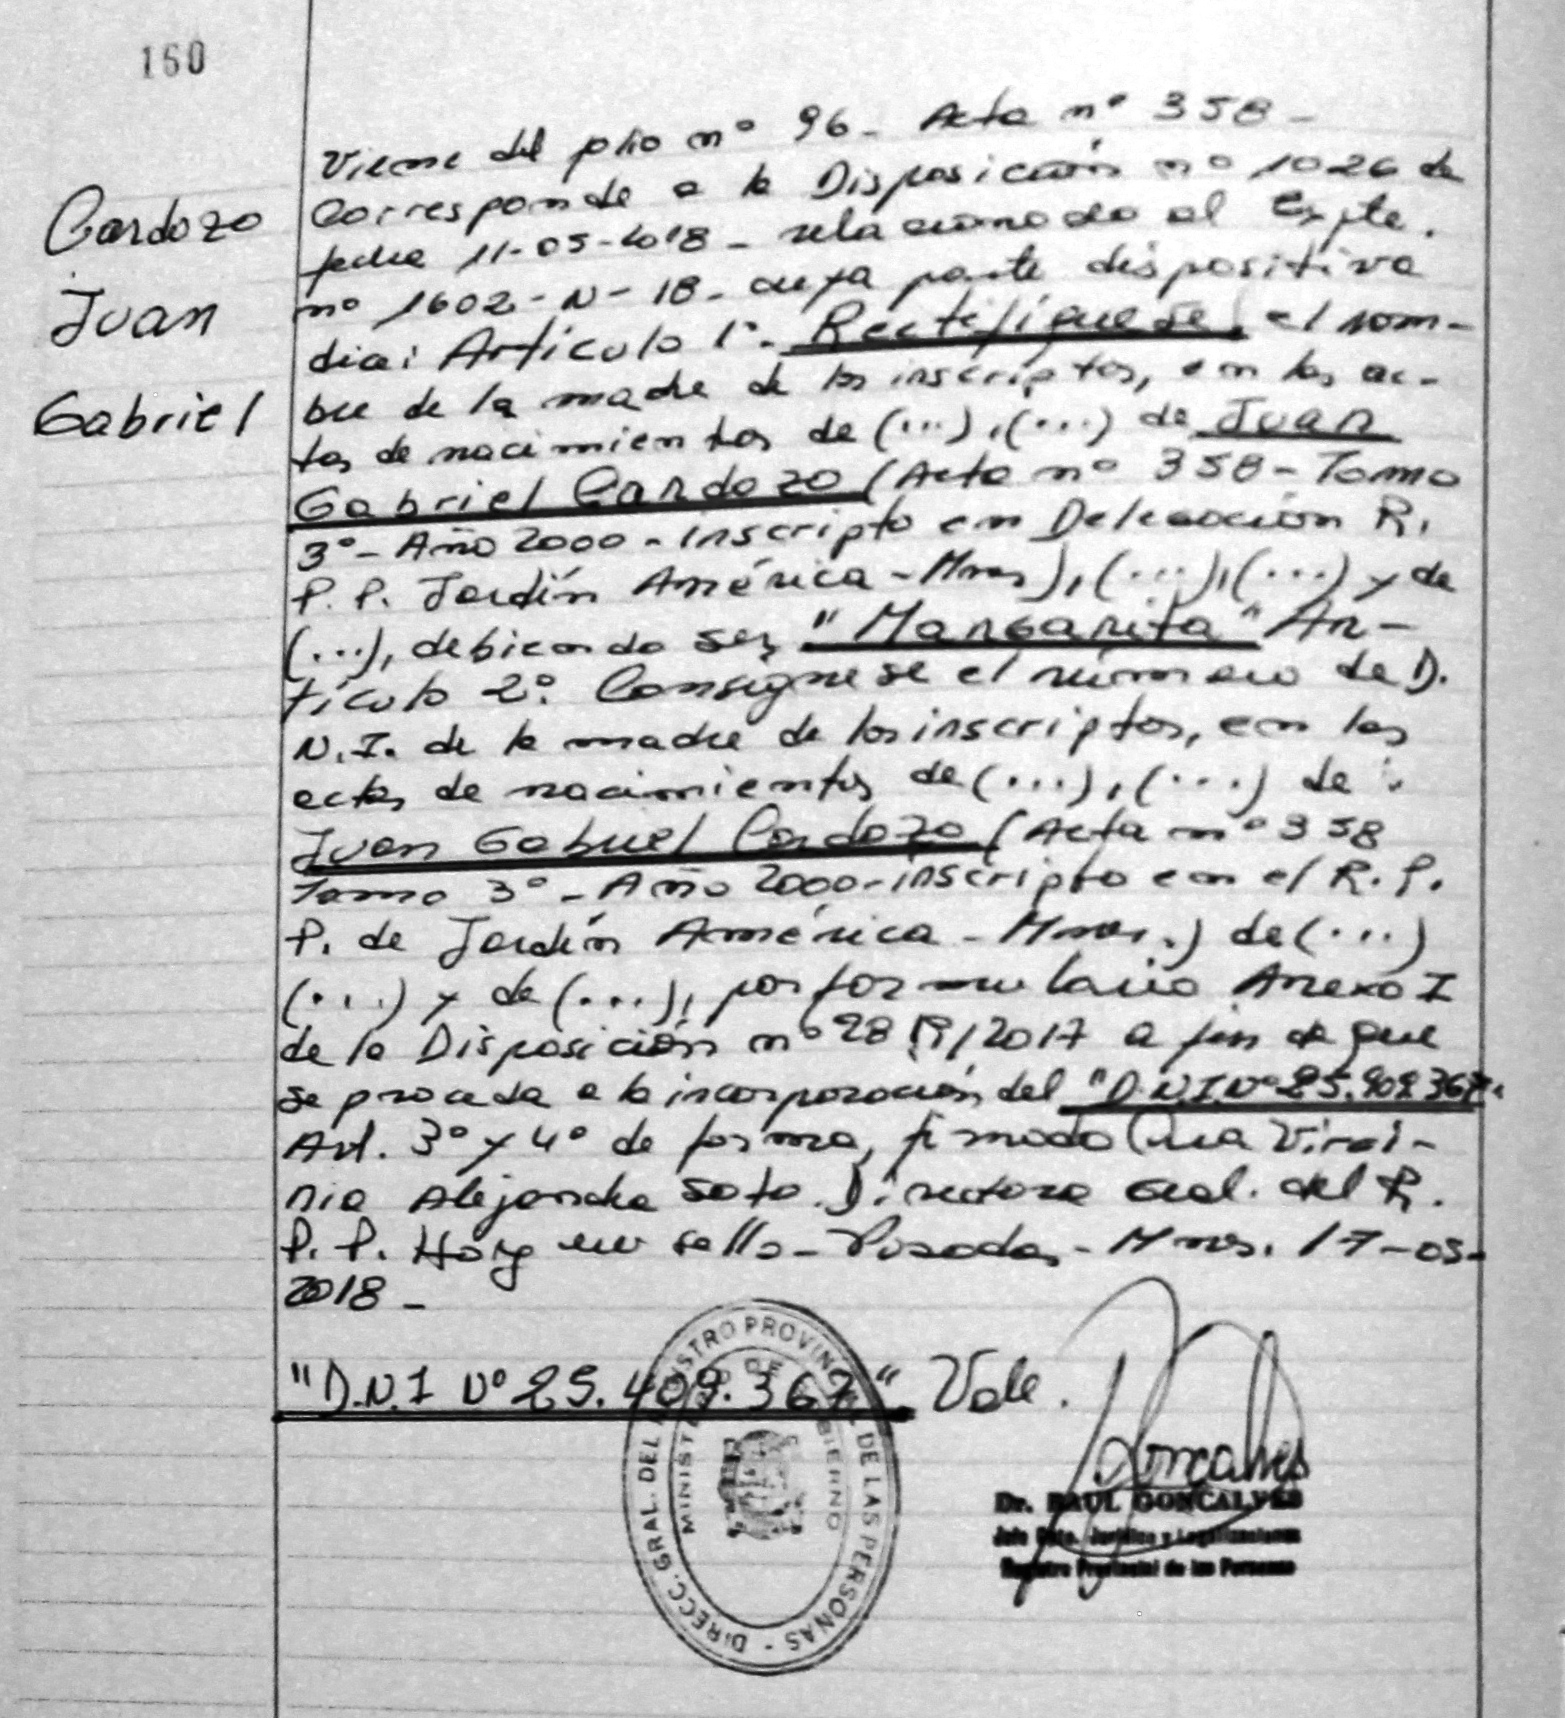 160
Cardozo
Juan
Gabriel
Viene del folio nº 96 - Acta nº 358 -
Corresponde a la Disposición nº 1026 de
fecha 11-05-2018 - relacionado al Expte.
nº 1602 - N - 18 - cuya parte dispositiva
dice: Artículo 1º. Rectifíquese, el nom-
bre de la madre de los inscriptos, en las ac-
tas de nacimientos de (...), (...) de Juan
Gabriel Cardozo (Acta nº 358 - Tomo
3º - Año 2000 - inscripto en Delegación R.
P. P. Jardín América - Mnes), (...), (...) y de
(...), debiendo ser, "Margarita" Ar-
tículo 2º. Consígnese el número de D.
N. I. de la madre de los inscriptos, en las
actas de nacimientos de (...), (...) de :
Juan Gabriel Cardozo (Acta nº 358
Tomo 3º - Año 2000 - inscripto en el R. P.
P. de Jardín América - Mnes.) de (...)
(...) y de (...), por formulario Anexo I
de la Disposición nº /2017 a fin de que
se proceda a la incorporación del "D.N.I. Nº 25.409.367".
Art. 3º y 4º de forma, firmado Virgi-
nia Alejandra Soto. Directora Gral. del R.
P. P. Hay un sello - Posadas - Mnes. 17-05-
2018 -
"D.N.I Nº 25.409.367" Vale.
DIRECC. GRAL. DEL REGISTRO PROVINCIAL DE LAS PERSONAS -
MINISTERIO DE GOBIERNO
Goncalves
Dr. RAUL GONCALVES
Jefe Dpto. Jurídico y Legalizaciones
Registro Provincial de las Personas